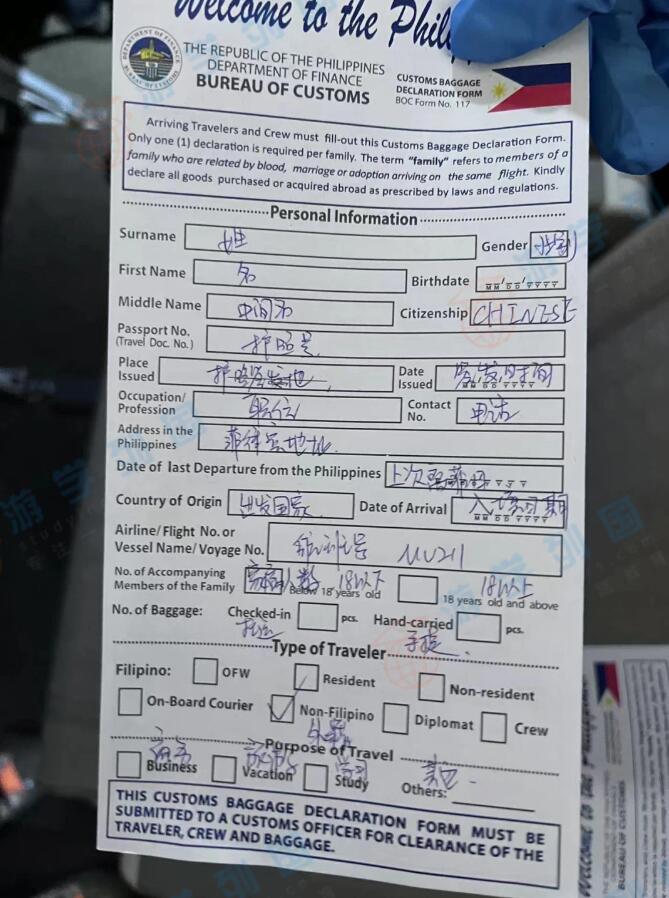 Welcome to the Phil
THE REPUBLIC OF THE PHILIPPINES
DEPARTMENT OF FINANCE
BUREAU OF CUSTOMS
CUSTOMS BAGGAGE
DECLARATION FORM
BOC Form No. 117
Arriving Travelers and Crew must fill-out this Customs Baggage Declaration Form.
Only one (1) declaration is required per family. The term "family" refers to members of a
family who are related by blood, marriage or adoption arriving on the same flight. Kindly
declare all goods purchased or acquired abroad as prescribed by laws and regulations.
Personal Information
Surname 姓 Gender 性别
First Name 名 Birthdate MM DD YYYY
Middle Name 中间名 Citizenship CHINESE
Passport No.
(Travel Doc. No.) 护照号
Place
Issued 护照签发地 Date
Issued 签发时间
Occupation/
Profession 职位 Contact
No. 电话
Address in the
Philippines 菲律宾地址
Date of last Departure from the Philippines 上次
Country of Origin 出发国家 Date of Arrival 入境日期
Airline/Flight No. or
Vessel Name/Voyage No. 航班号 MU211
No. of Accompanying
Members of the Family 家庭人数 18以下 Below 18 years old 18以上 18 years old and above
No. of Baggage: Checked-in pcs. Hand-carried pcs.
托运 手提
Type of Traveler
Filipino: OFW Resident Non-resident
On-Board Courier Non-Filipino Diplomat Crew
外籍
Purpose of Travel
商务 学习 其他
Business Vacation Study Others:
THIS CUSTOMS BAGGAGE DECLARATION FORM MUST BE
SUBMITTED TO A CUSTOMS OFFICER FOR CLEARANCE OF THE
TRAVELER, CREW AND BAGGAGE.